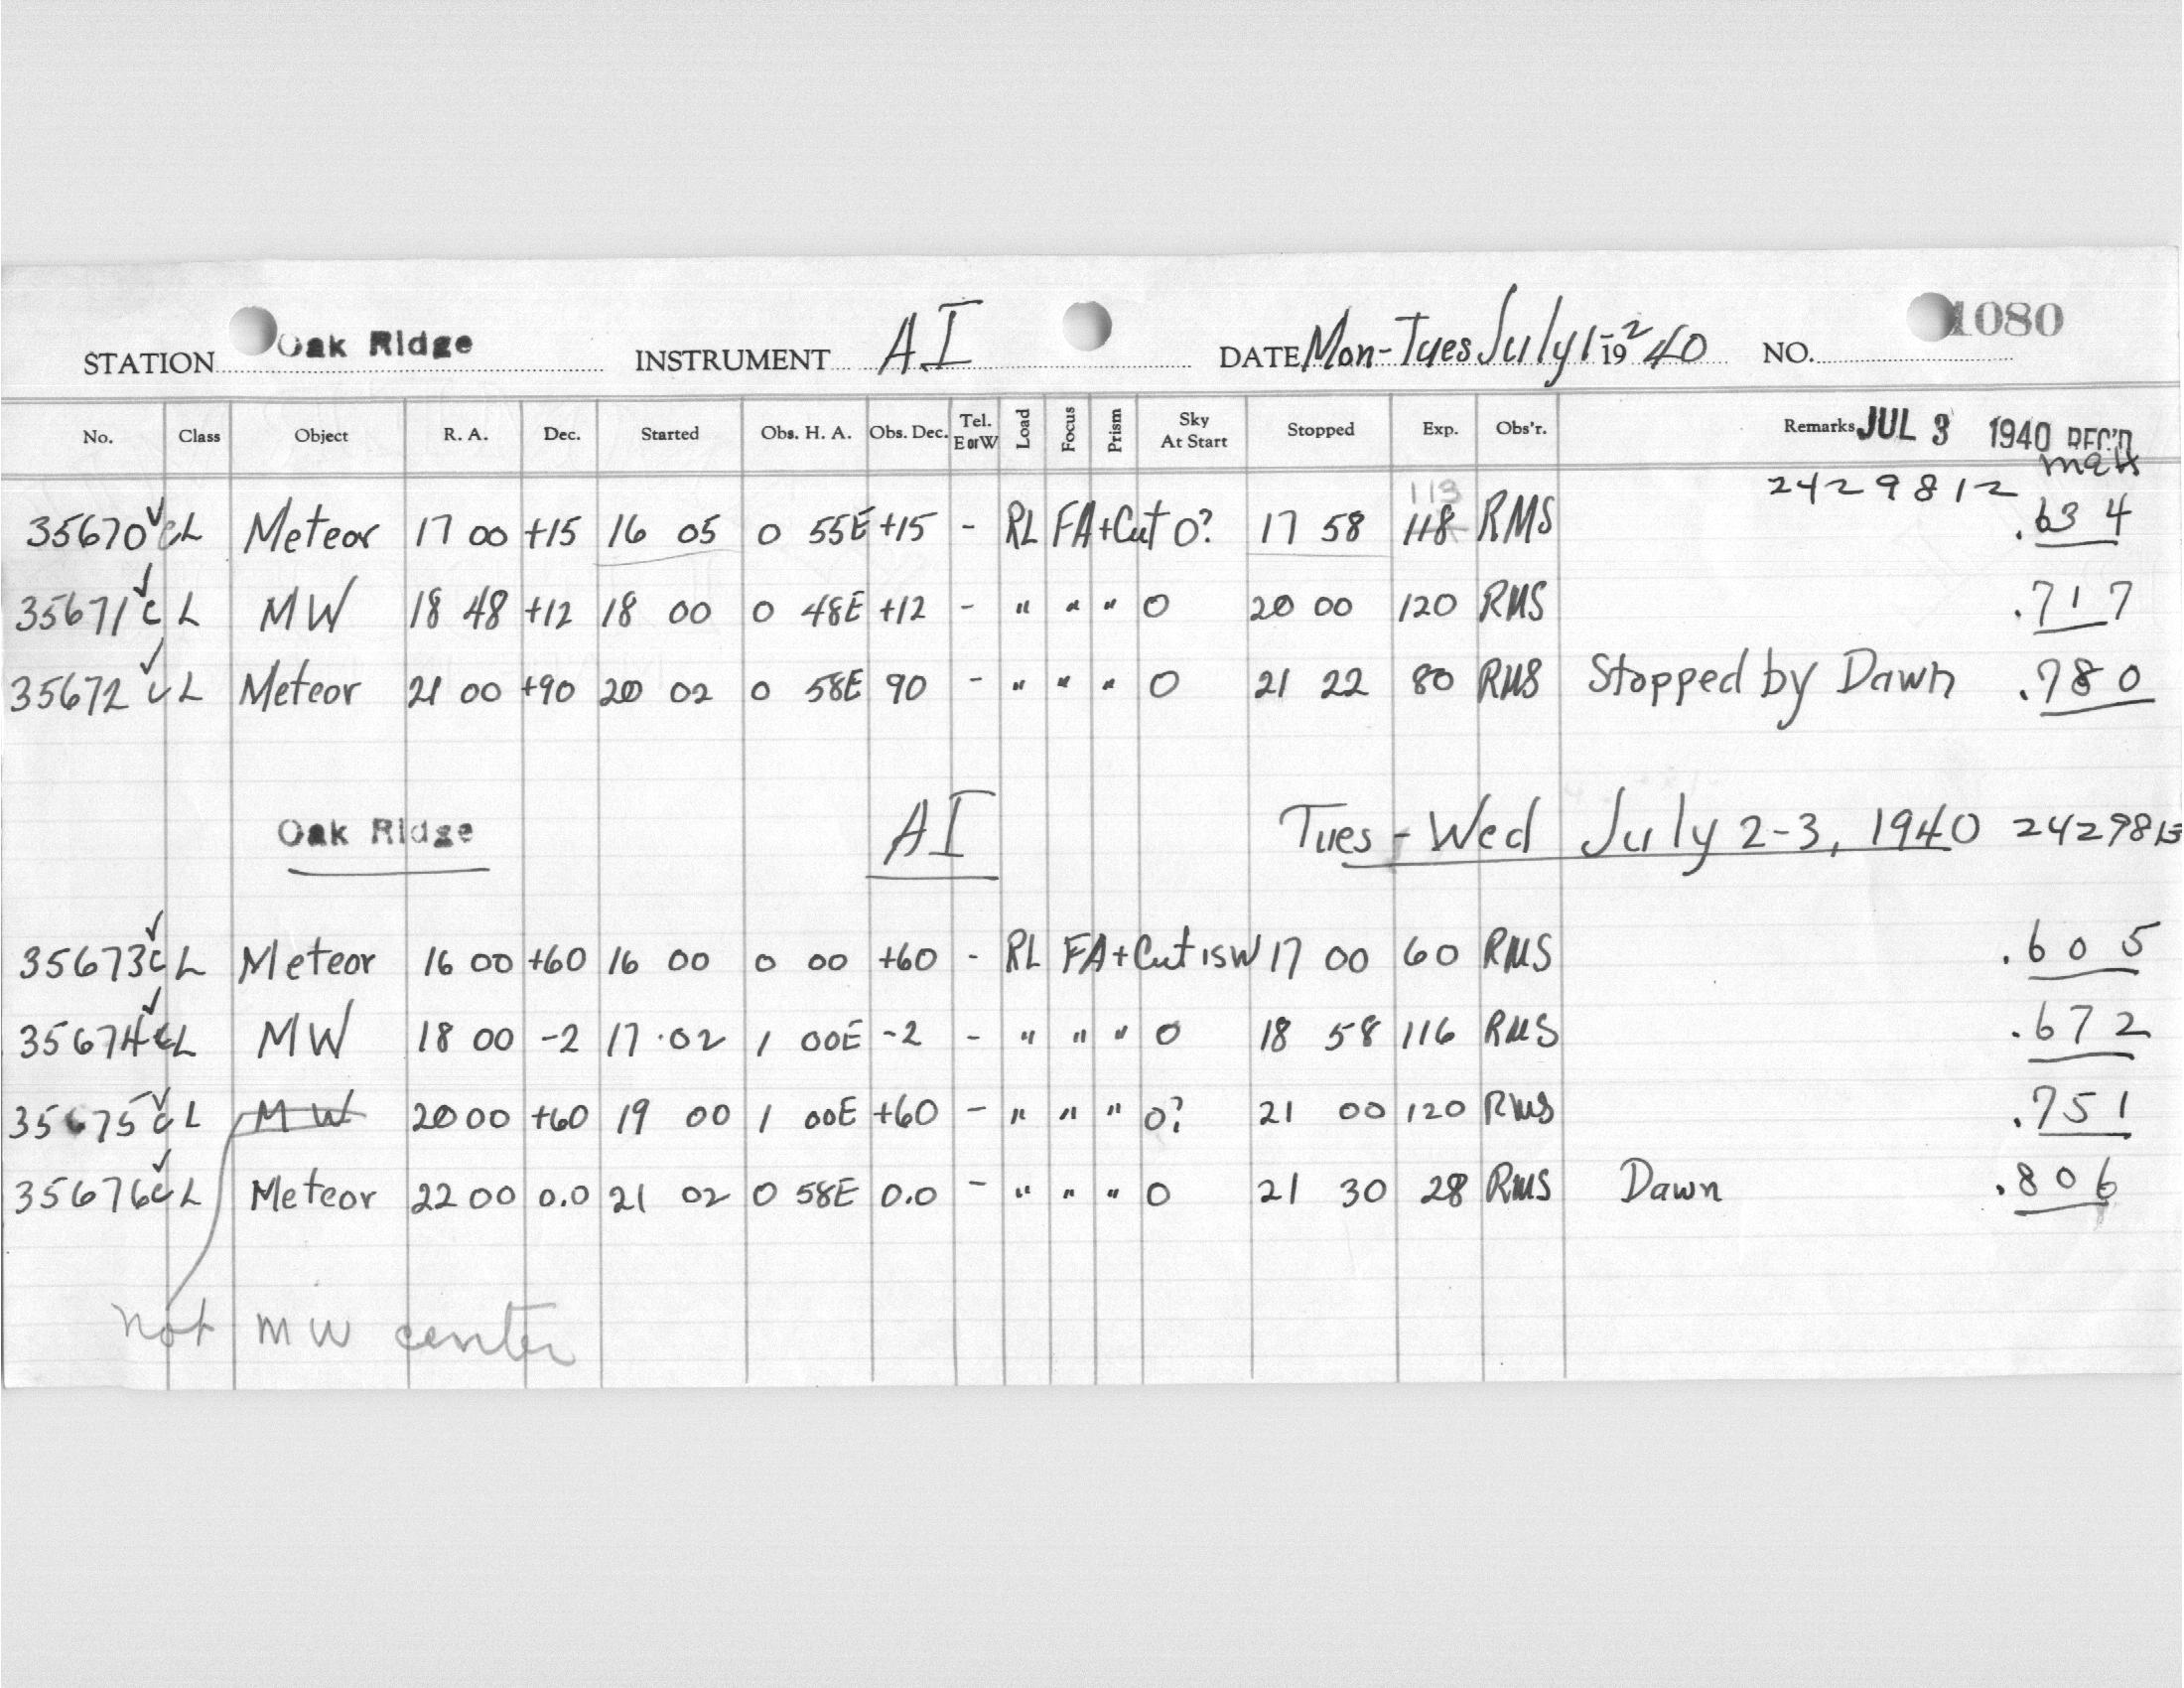 STATION Oak Ridge INSTRUMENT AI DATE Mon-Tues July 1-2 1940 NO. 1080
No. Class Object R. A. Dec. Started Obs. H. A. Obs. Dec. Tel. E or W Load Focus Prism Sky At Start Stopped Exp. Obs'r. Remarks JUL 3 1940 REC'D
2429812
113
35670 c L Meteor 17 00 +15 16 05 0 55E +15 - RL FA+Cut 0? 17 58 118 RMS .634
35671 c L MW 18 48 +12 18 00 0 48E +12 - " " " 0 20 00 120 RMS .717
35672 c L Meteor 21 00 +90 20 02 0 58E 90 - " " " 0 21 22 80 RMS Stopped by Dawn .780
Oak Ridge AI Tues - Wed July 2-3, 1940 2429813
35673 c L Meteor 16 00 +60 16 00 0 00 +60 - RL FA+Cut ISW 17 00 60 RMS .605
35674 c L MW 18 00 -2 17 02 1 00E -2 - " " " 0 18 58 116 RMS .672
35675 c L MW 20 00 +60 19 00 1 00E +60 - " " " 0? 21 00 120 RMS .751
35676 c L Meteor 22 00 0.0 21 02 0 58E 0.0 - " " " 0 21 30 28 RMS Dawn .806
not MW center